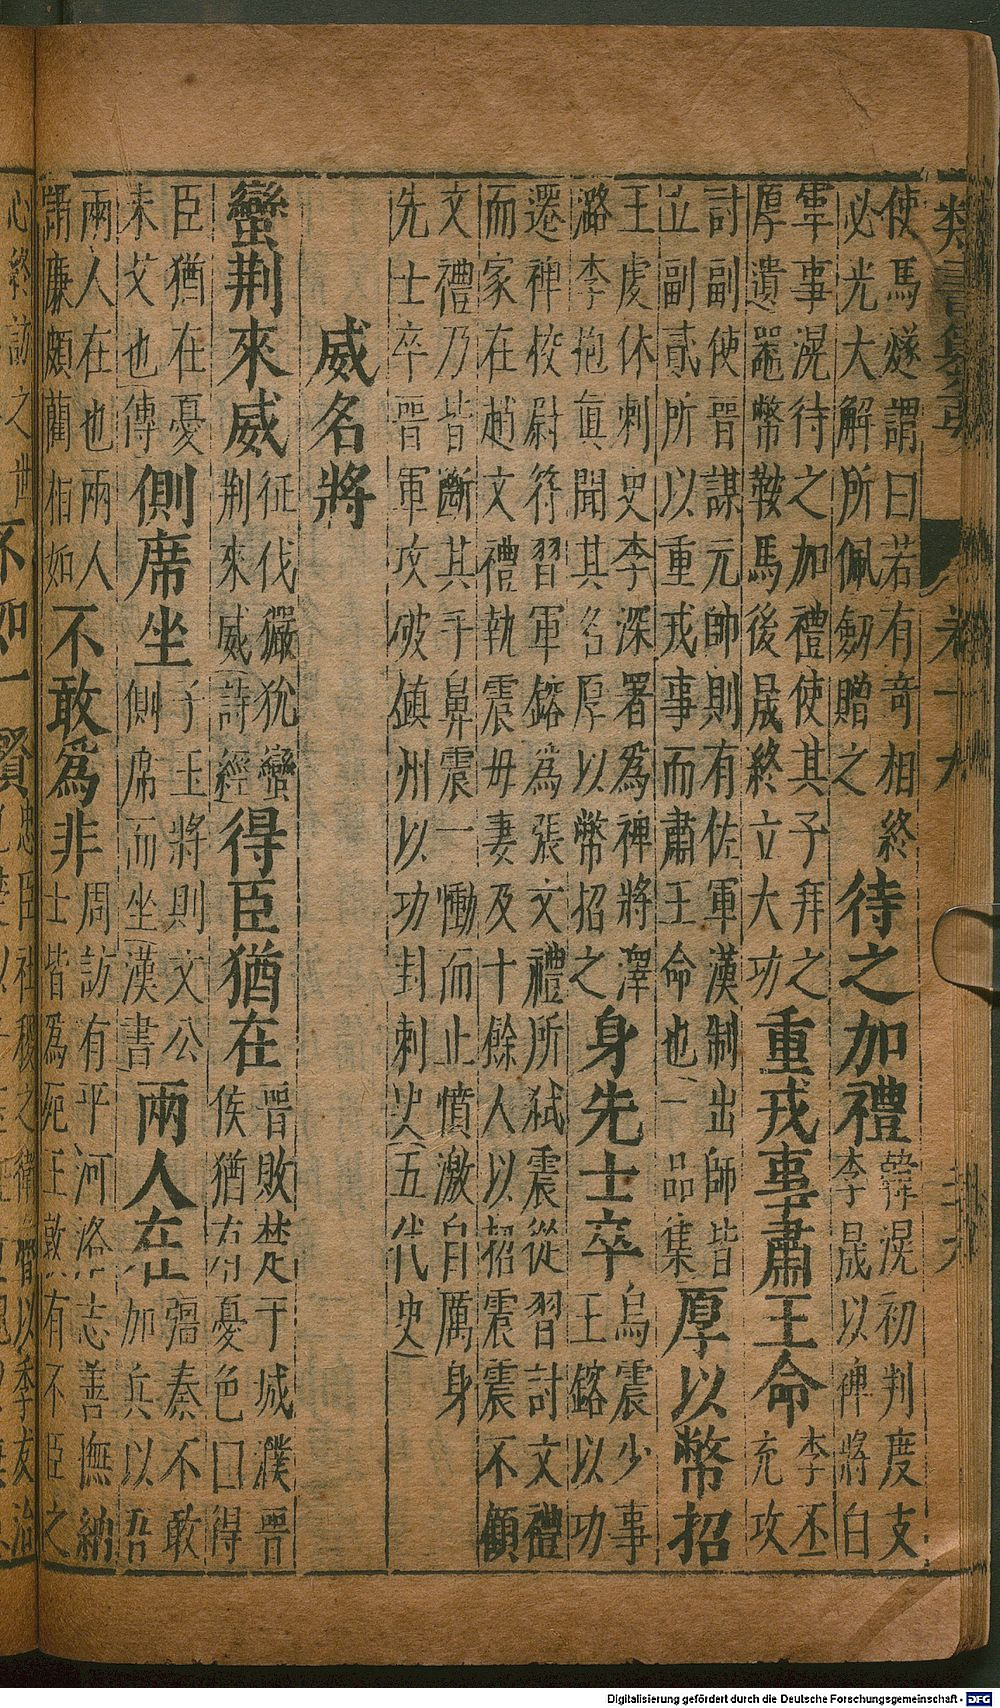 使馬燧謂曰若有奇相終
必光大解所佩劒贈之
待之加禮
韓滉初判度支
李晟以裨將白
軍事滉待之加禮使其子拜之
厚遺器幣鞍馬後晟終立大功
重戎事肅王命
李丕
充攻
討副使晉謀元帥則有佐軍漢制出師皆
立副貳所以重戎事而肅王命也一品集
厚以幣招
王處休刺史李深署為裨將澤
潞李抱真聞其名厚以幣招之
身先士卒
烏震少事
王鎔以功
遷裨校尉符習軍鎔為張文禮所弒震從習討文禮
而家在趙文禮執震母妻及十餘人以招震震不顧
文禮乃皆斷其手鼻震一慟而止憤激自厲身
先士卒晉軍攻破鎮州以功封刺史(五代史)
威名將
蠻荆來威
征伐玁狁蠻
荆來威(詩經)
得臣猶在
晉敗楚于城濮晉
侯猶有憂色曰得
臣猶在憂
未艾也傳
側席坐
子玉將則文公
側席而坐(漢書)
兩人在
彊秦不敢
加兵以吾
兩人在也兩人
謂廉頗藺相如
不敢為非
周訪有平河洛志善撫納
士皆為死王敦有不臣之
心終訪之世
不如一賢
類書纂要
卷十九
Digitalisierung gefördert durch die Deutsche Forschungsgemeinschaft - DFG